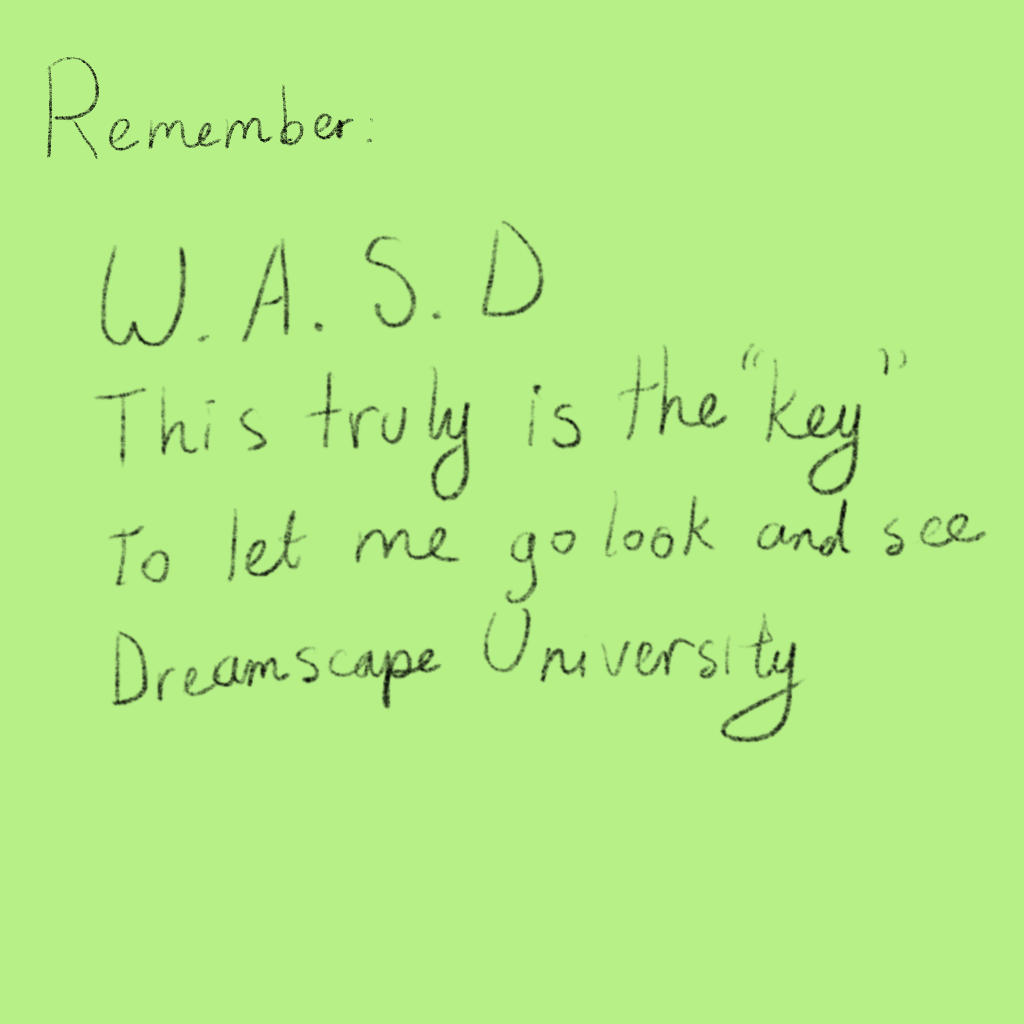 Remember:
W. A. S. D
This truly is the "key"
To let me go look and see
Dreamscape University